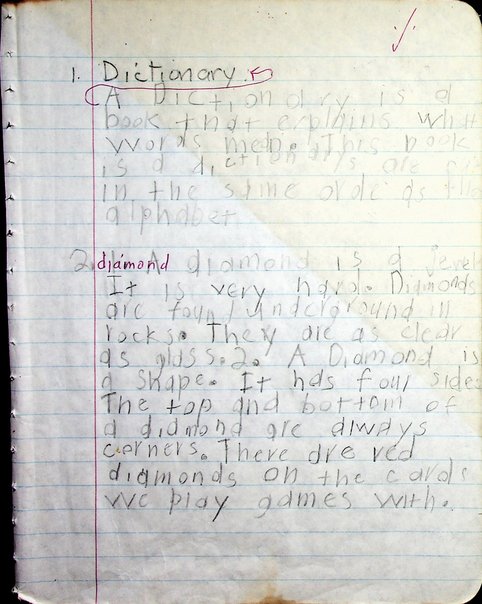 1. Dictionary.
A Dictionary is a
book that explains what
words men. This book
is a dictionarys are
in the same orde as the
alphabet
2. diamond 1. A diamond is a jewel
It is very hard. Diamonds
are foun underground in
rocks. They are as clear
as glass. 2. A Diamond is
a shape. It has four sides
The top and bottom of
a diamond are always
corners. There are red
diamonds on the cards
we play games with.